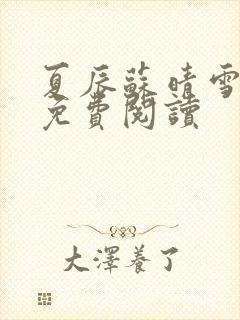 夏辰蘇晴雪
免費閱讀
大澤養了